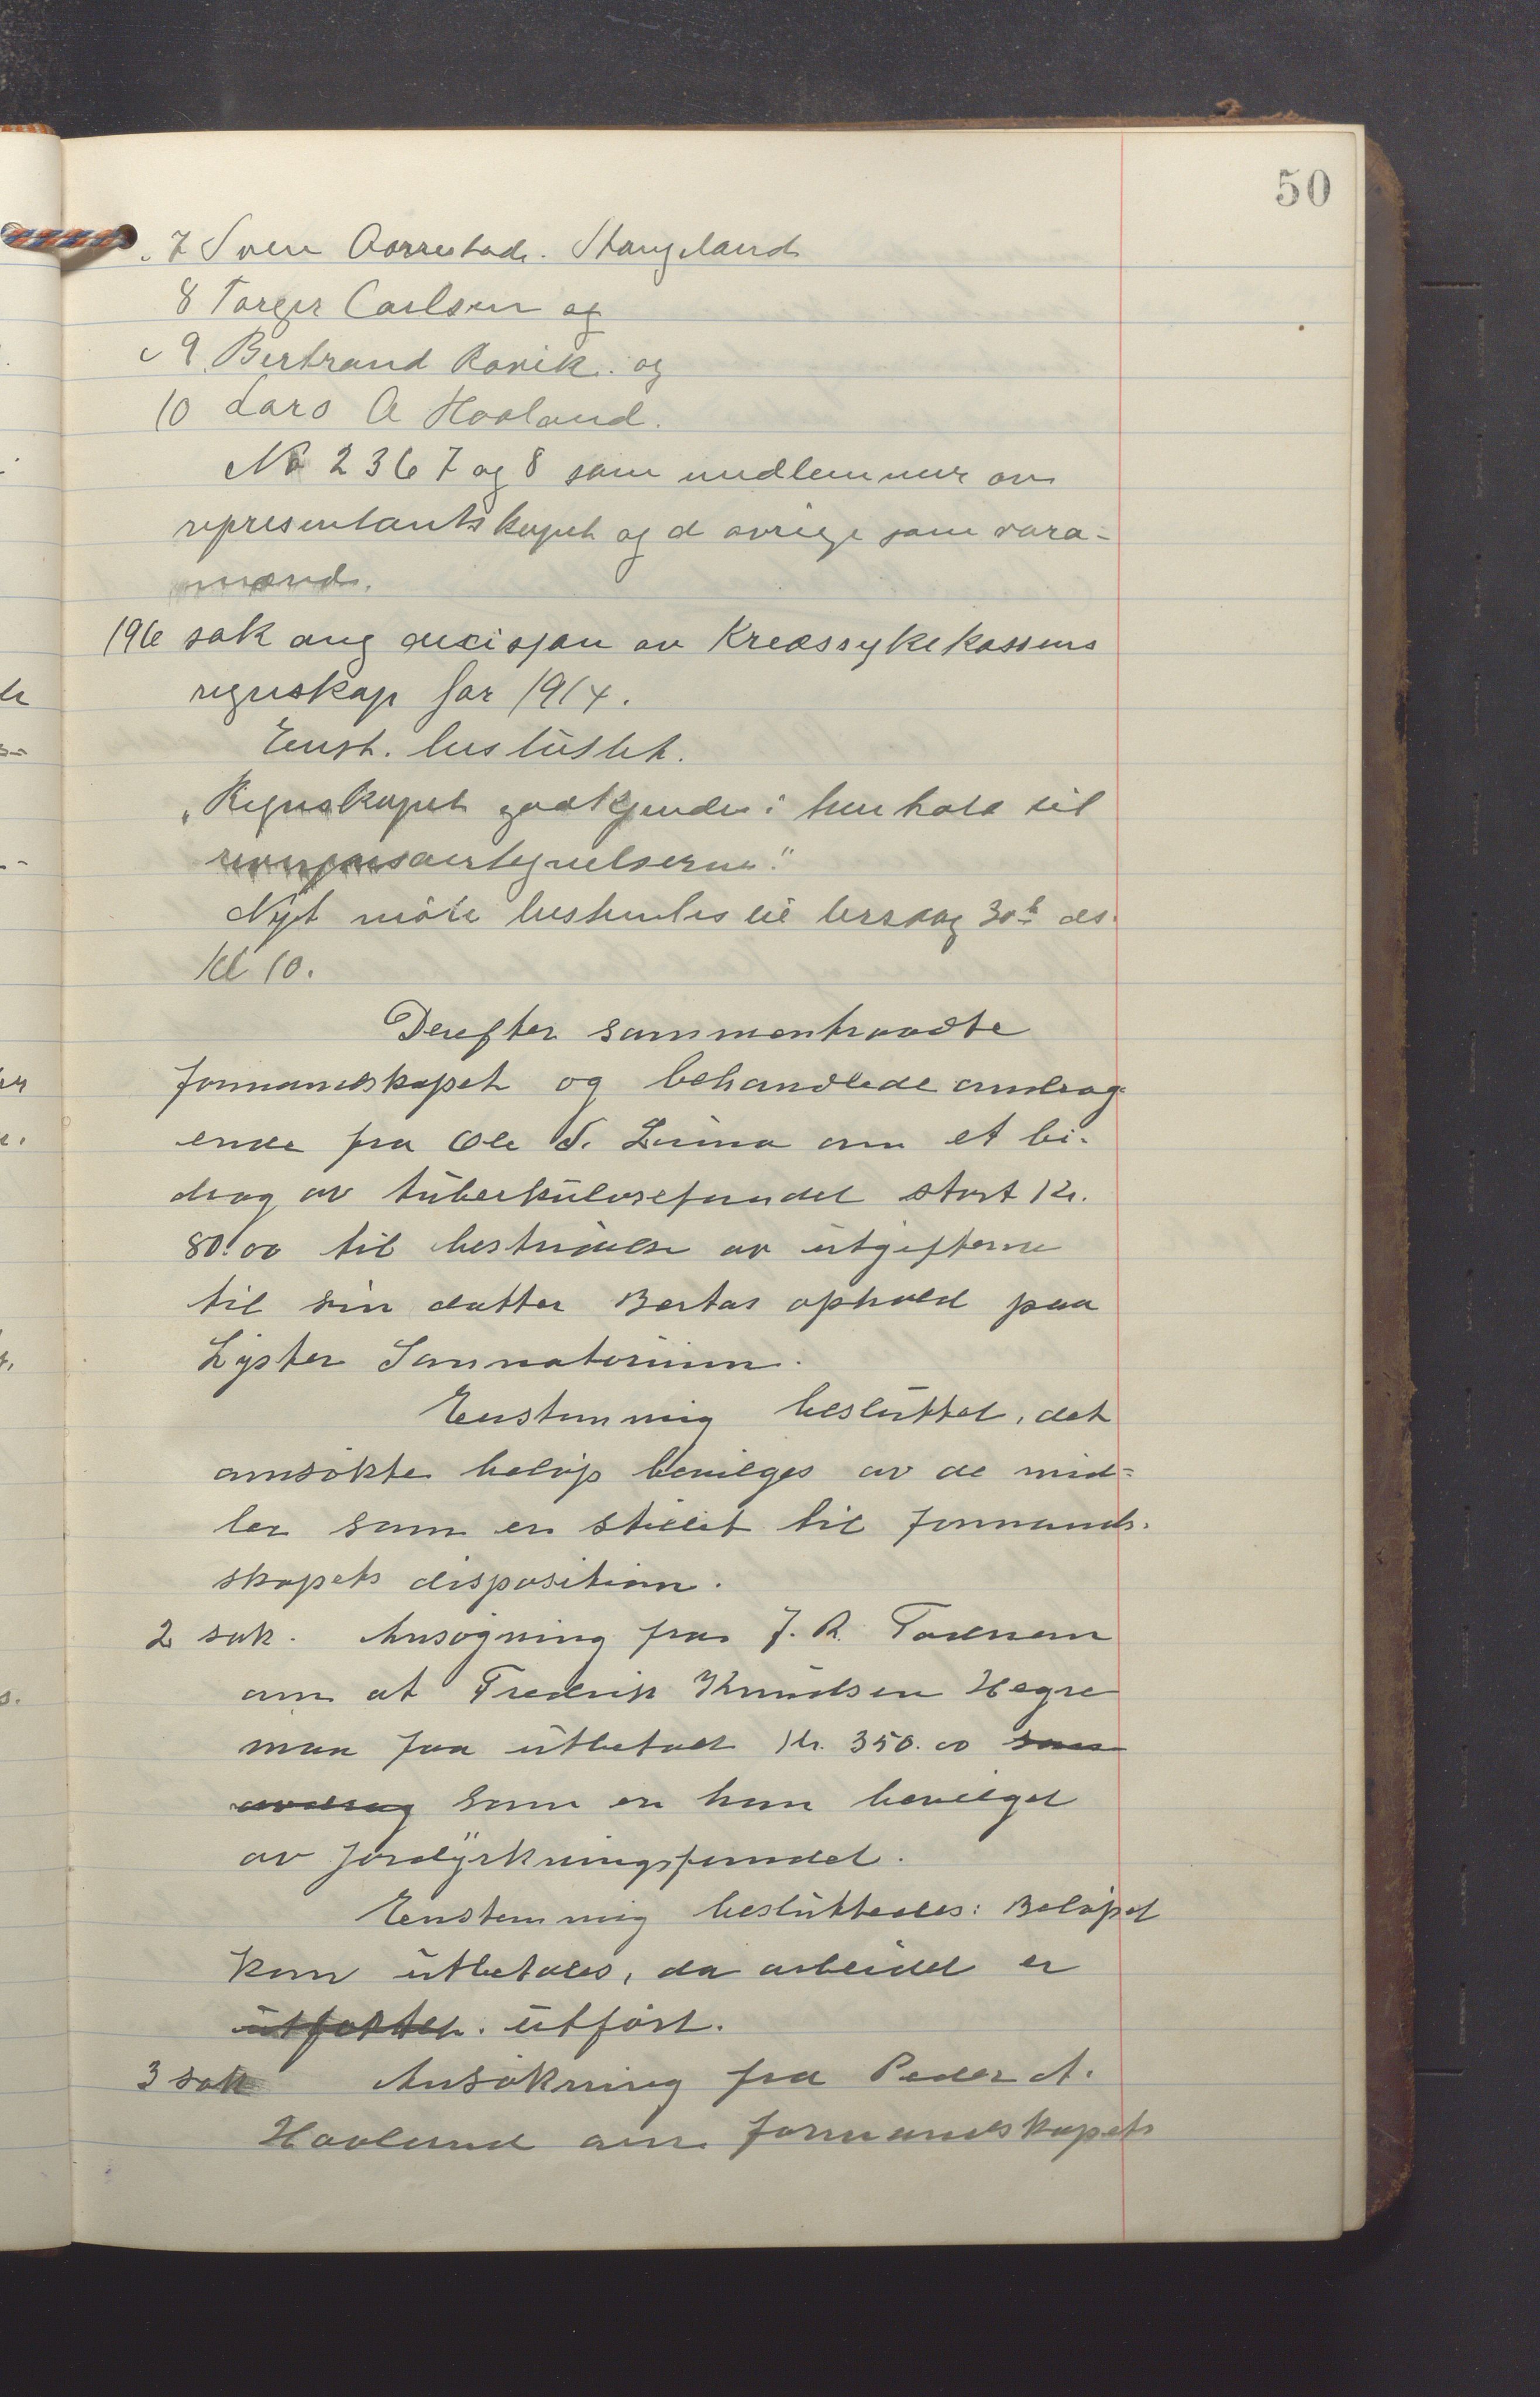 50
7 Sven Aarrestad. Stangeland
8 Torger Carlsen og
9 Bertrand Ravik. og
10 Lars A Haaland.
No 2 3 6 7 og 8 som medlemmer av
representantskapet og d øvrige som vara-
mænd.
196 sak ang decisjon av Kredssykekassens
regnskap for 1914.
Enst. besluttet.
„Regnskapet godkjendes i henhold til
antegnelserne."
Nyt møte bestemtes til lørdag 30te ds.
Kl 10.
Derefter sammentraadte
formandskapet og behandlede andrag
ende fra Ole S. Lima om et bi-
drag av tuberkulosefondet stort Kr.
80.00 til bestridelse av utgifterne
til sin datter Bertas ophold paa
Lyster Sannatorium.
Enstemmig besluttet, det
ansøkte beløp bevilges av de mid-
ler som er stillet til formands-
skapets disposition.
2 sak. Ansøgning fra J. R. Tadnem
om at Fredrik Knudsen Hegre
maa faa utbetalt Kr. 350.00 som
avdrag som er ham bevilget
av jordyrkningsfondet.
Enstemmig besluttedes: Beløpet
kan utbetales, da arbeidet er
utført.
3 sak Ansøkning fra Peder A.
Haaland om formandskapets